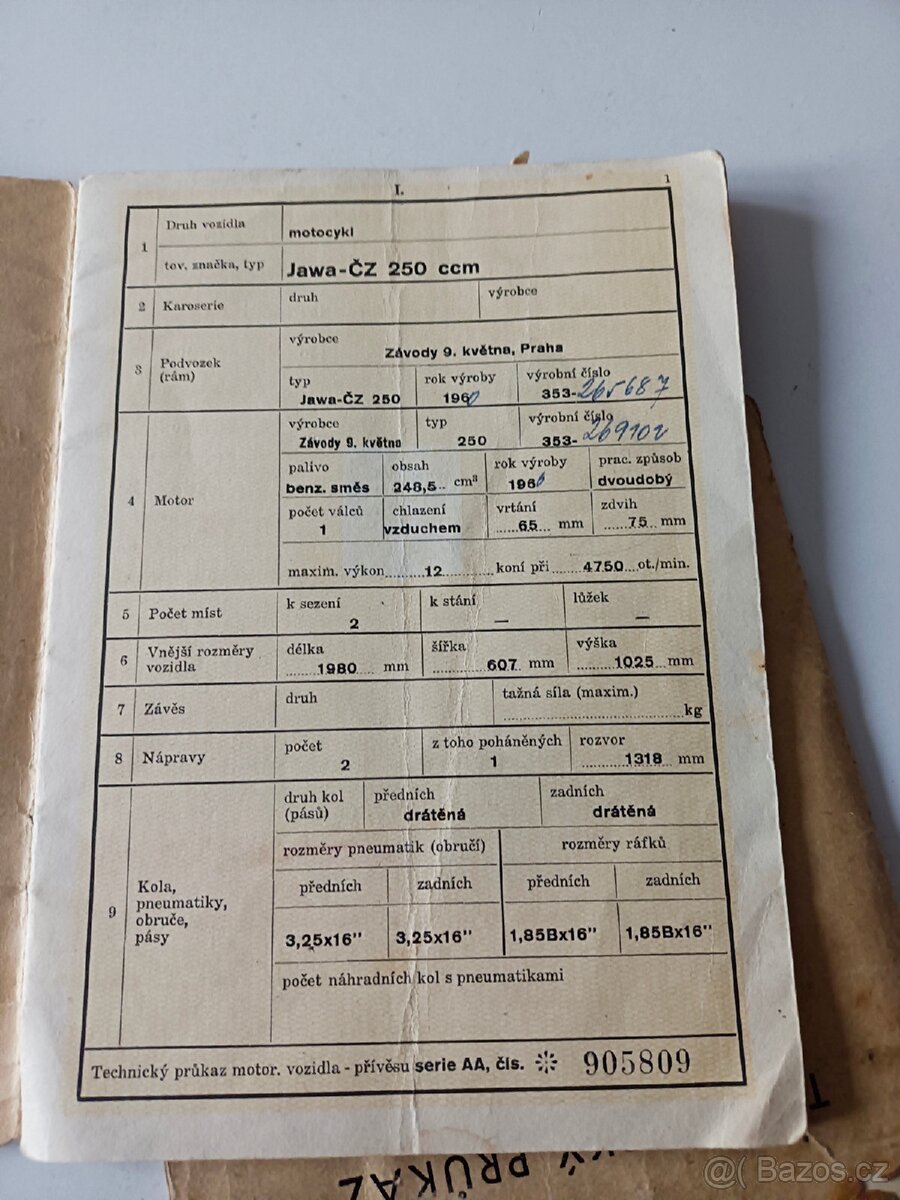 I.
1
1
Druh vozidla
motocykl
tov. značka, typ
Jawa-ČZ 250 ccm
2
Karoserie
druh
výrobce
3
Podvozek
(rám)
výrobce
Závody 9. května, Praha
typ
Jawa-ČZ 250
rok výroby
1960
výrobní číslo
353-265687
4
Motor
výrobce
Závody 9. května
typ
250
výrobní číslo
353-
palivo
benz. směs
obsah
248,5.. cm³
rok výroby
1960
prac. způsob
dvoudobý
počet válců
1
chlazení
vzduchem
vrtání
......65... mm
zdvih
.....75.. mm
maxim. výkon........12..........koní při......4750...ot./min.
5
Počet míst
k sezení
2
k stání
—
lůžek
—
6
Vnější rozměry
vozidla
délka
......1980..... mm
šířka
..........607... mm
výška
.......1025... mm
7
Závěs
druh
tažná síla (maxim.)
kg
8
Nápravy
počet
2
z toho poháněných
1
rozvor
........1318... mm
9
Kola,
pneumatiky,
obruče,
pásy
druh kol
(pásů)
předních
drátěná
zadních
drátěná
rozměry pneumatik (obručí)
rozměry ráfků
předních
zadních
předních
zadních
3,25x16"
3,25x16"
1,85Bx16"
1,85Bx16"
počet náhradních kol s pneumatikami
Technický průkaz motor. vozidla - přívěsu serie AA, čís. 905809
KÝ PRŮKAZ
T
@( Bazos.cz